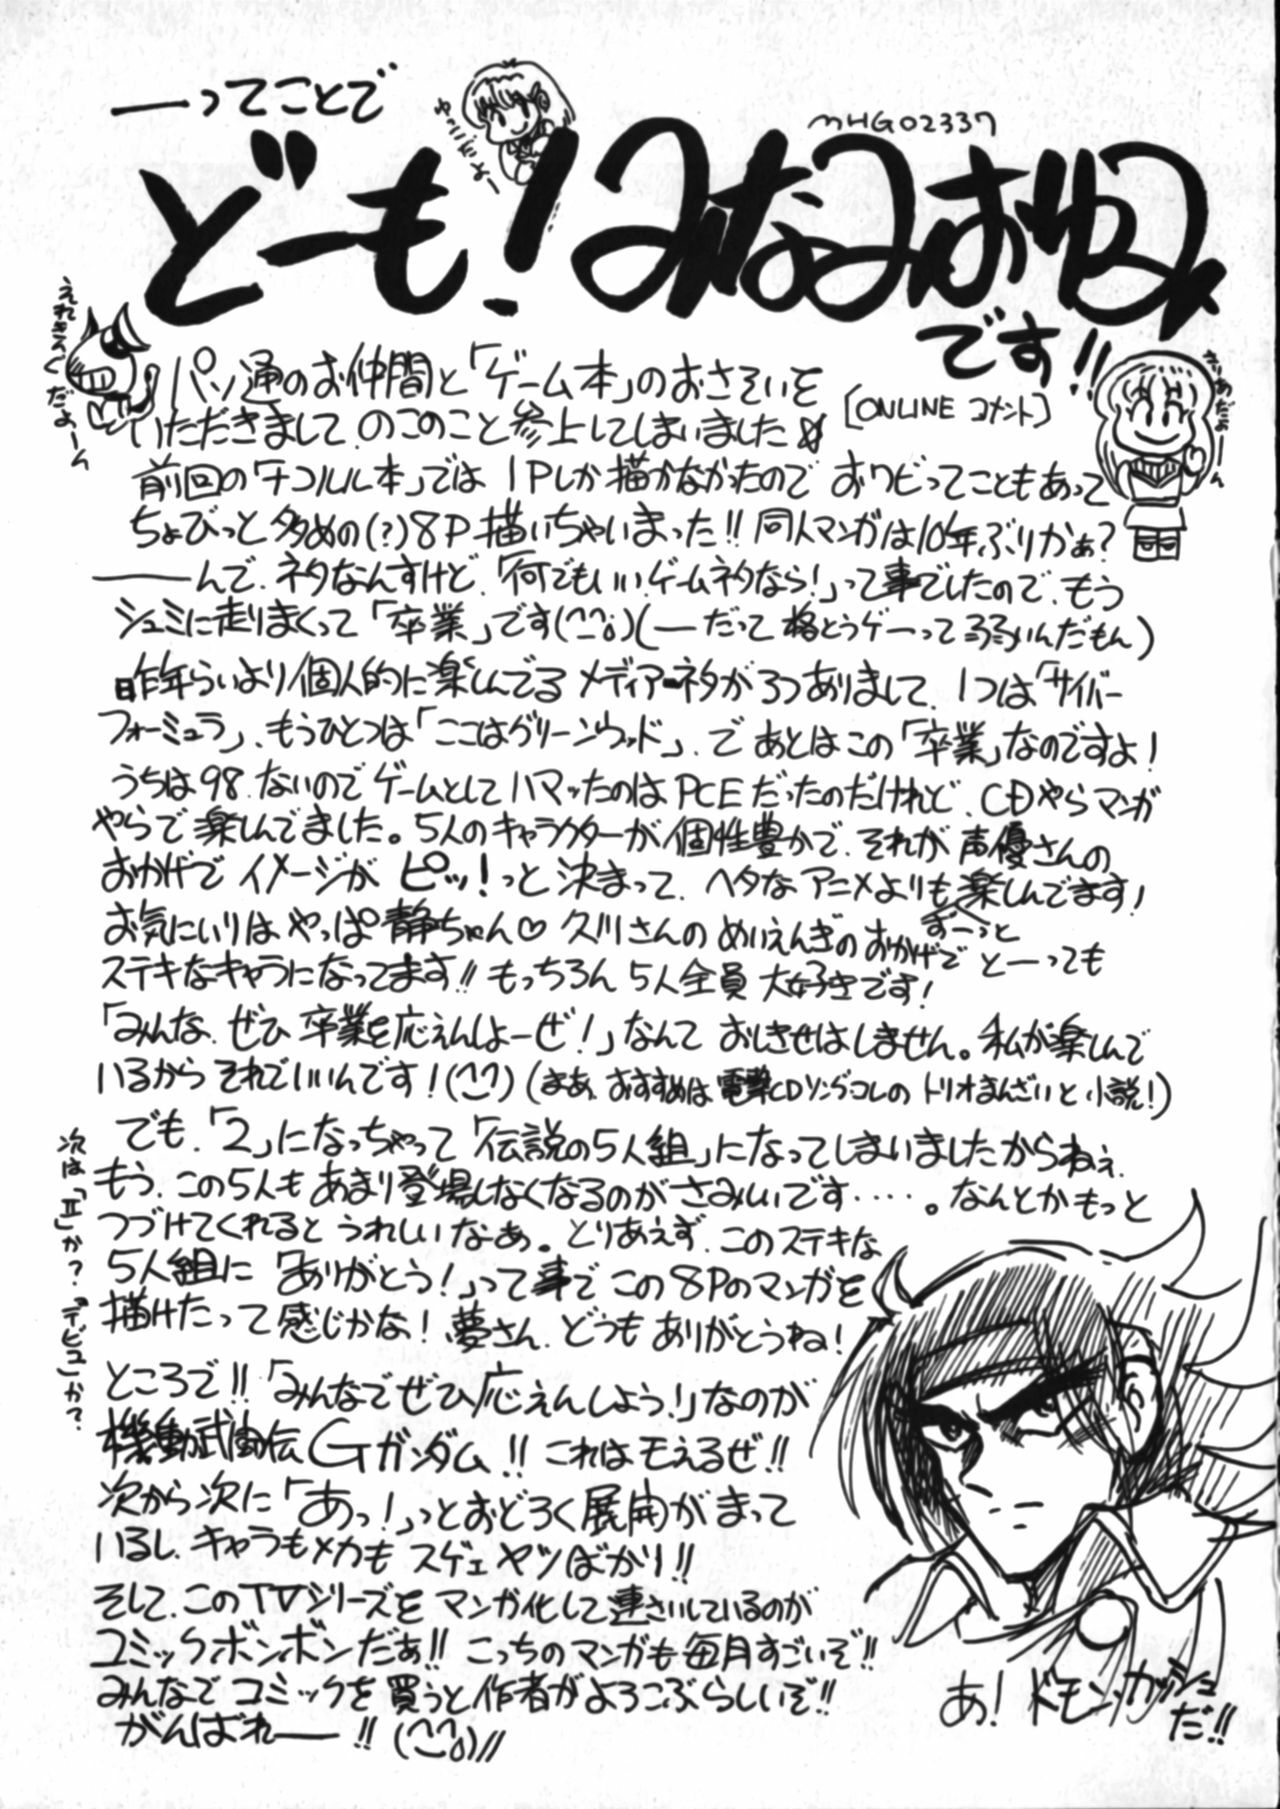 ——ってことで
ゆっこだよー
MHG02337
どーも！みなみおゆみ
です!!
えれきんぐだよーん
きりあだよーん
パソ通のお仲間と「ゲーム本」のおさそいを
[ONLINE コメント]
いただきまして、のこのこと参上してしまいました
前回の「ナコルル本」では 1Pしか描かなかったので おワビってこともあって
ちょびっと多めの(?)8P描いちゃいまった!! 同人マンガは10年ぶりかぁ?
——んで、ネタなんすけど、「何でもいいゲームネタなら!」って事でしたので、もう
シュミに走りまくって「卒業」です(^^;)(—だって格とうゲーって弱いんだもん)
昨年らいより個人的に楽しんでるメディアーネタが3つありまして、1つは「サイバー
フォーミュラ」、もうひとつは「ここはグリーンウッド」、で あとはこの「卒業」なのですよ!
うちは98ないのでゲームとしてハマったのはPCEだったのだけれど、CDやらマンガ
やらで楽しんでました。5人のキャラクターが個性豊かで、それが声優さんの
おかげでイメージがピッ!っと決まって、ヘタなアニメよりもずーっと楽しんでます!
お気にいりはやっぱ静ちゃん♡ 久川さんのめいえんぎのおかげでとーっても
ステキなキャラになってます!! もっちろん5人全員大好きです!
「みんな、ぜひ卒業を応えんしよーぜ!」なんて おしきせはしません。私が楽しんで
いるからそれでいいんです!(^^)(まあ、おすすめは電撃CDソングコレのトリオまんざいと小説!)
でも、「2」になっちゃって「伝説の5人組」になってしまいましたからねぇ、
もう、この5人もあまり登場しなくなるのがさみしいです‥‥。なんとかもっと
つづけてくれるとうれしいなあ。とりあえず、このステキな
5人組に「ありがとう!」って事でこの8Pのマンガを
描けたって感じかな! 夢さん、どうもありがとうね!
次は「II」か?「デビュー」か?
ところで!!「みんなでぜひ応えんしよう!」なのが
機動武闘伝Gガンダム!! これはモえるぜ!!
次から次に「あっ!」っとおどろく展開がまって
いるし、キャラもメカもスゲェヤツばかり!!
そして、このTVシリーズをマンガ化して連さいしているのが
コミックボンボンだぁ!! こっちのマンガも毎月すごいぞ!!
みんなでコミックを買うと作者がよろこぶらしいぞ!!
がんばれ——!! (^^;)//
あ! ドモン・カッシュ
だ!!